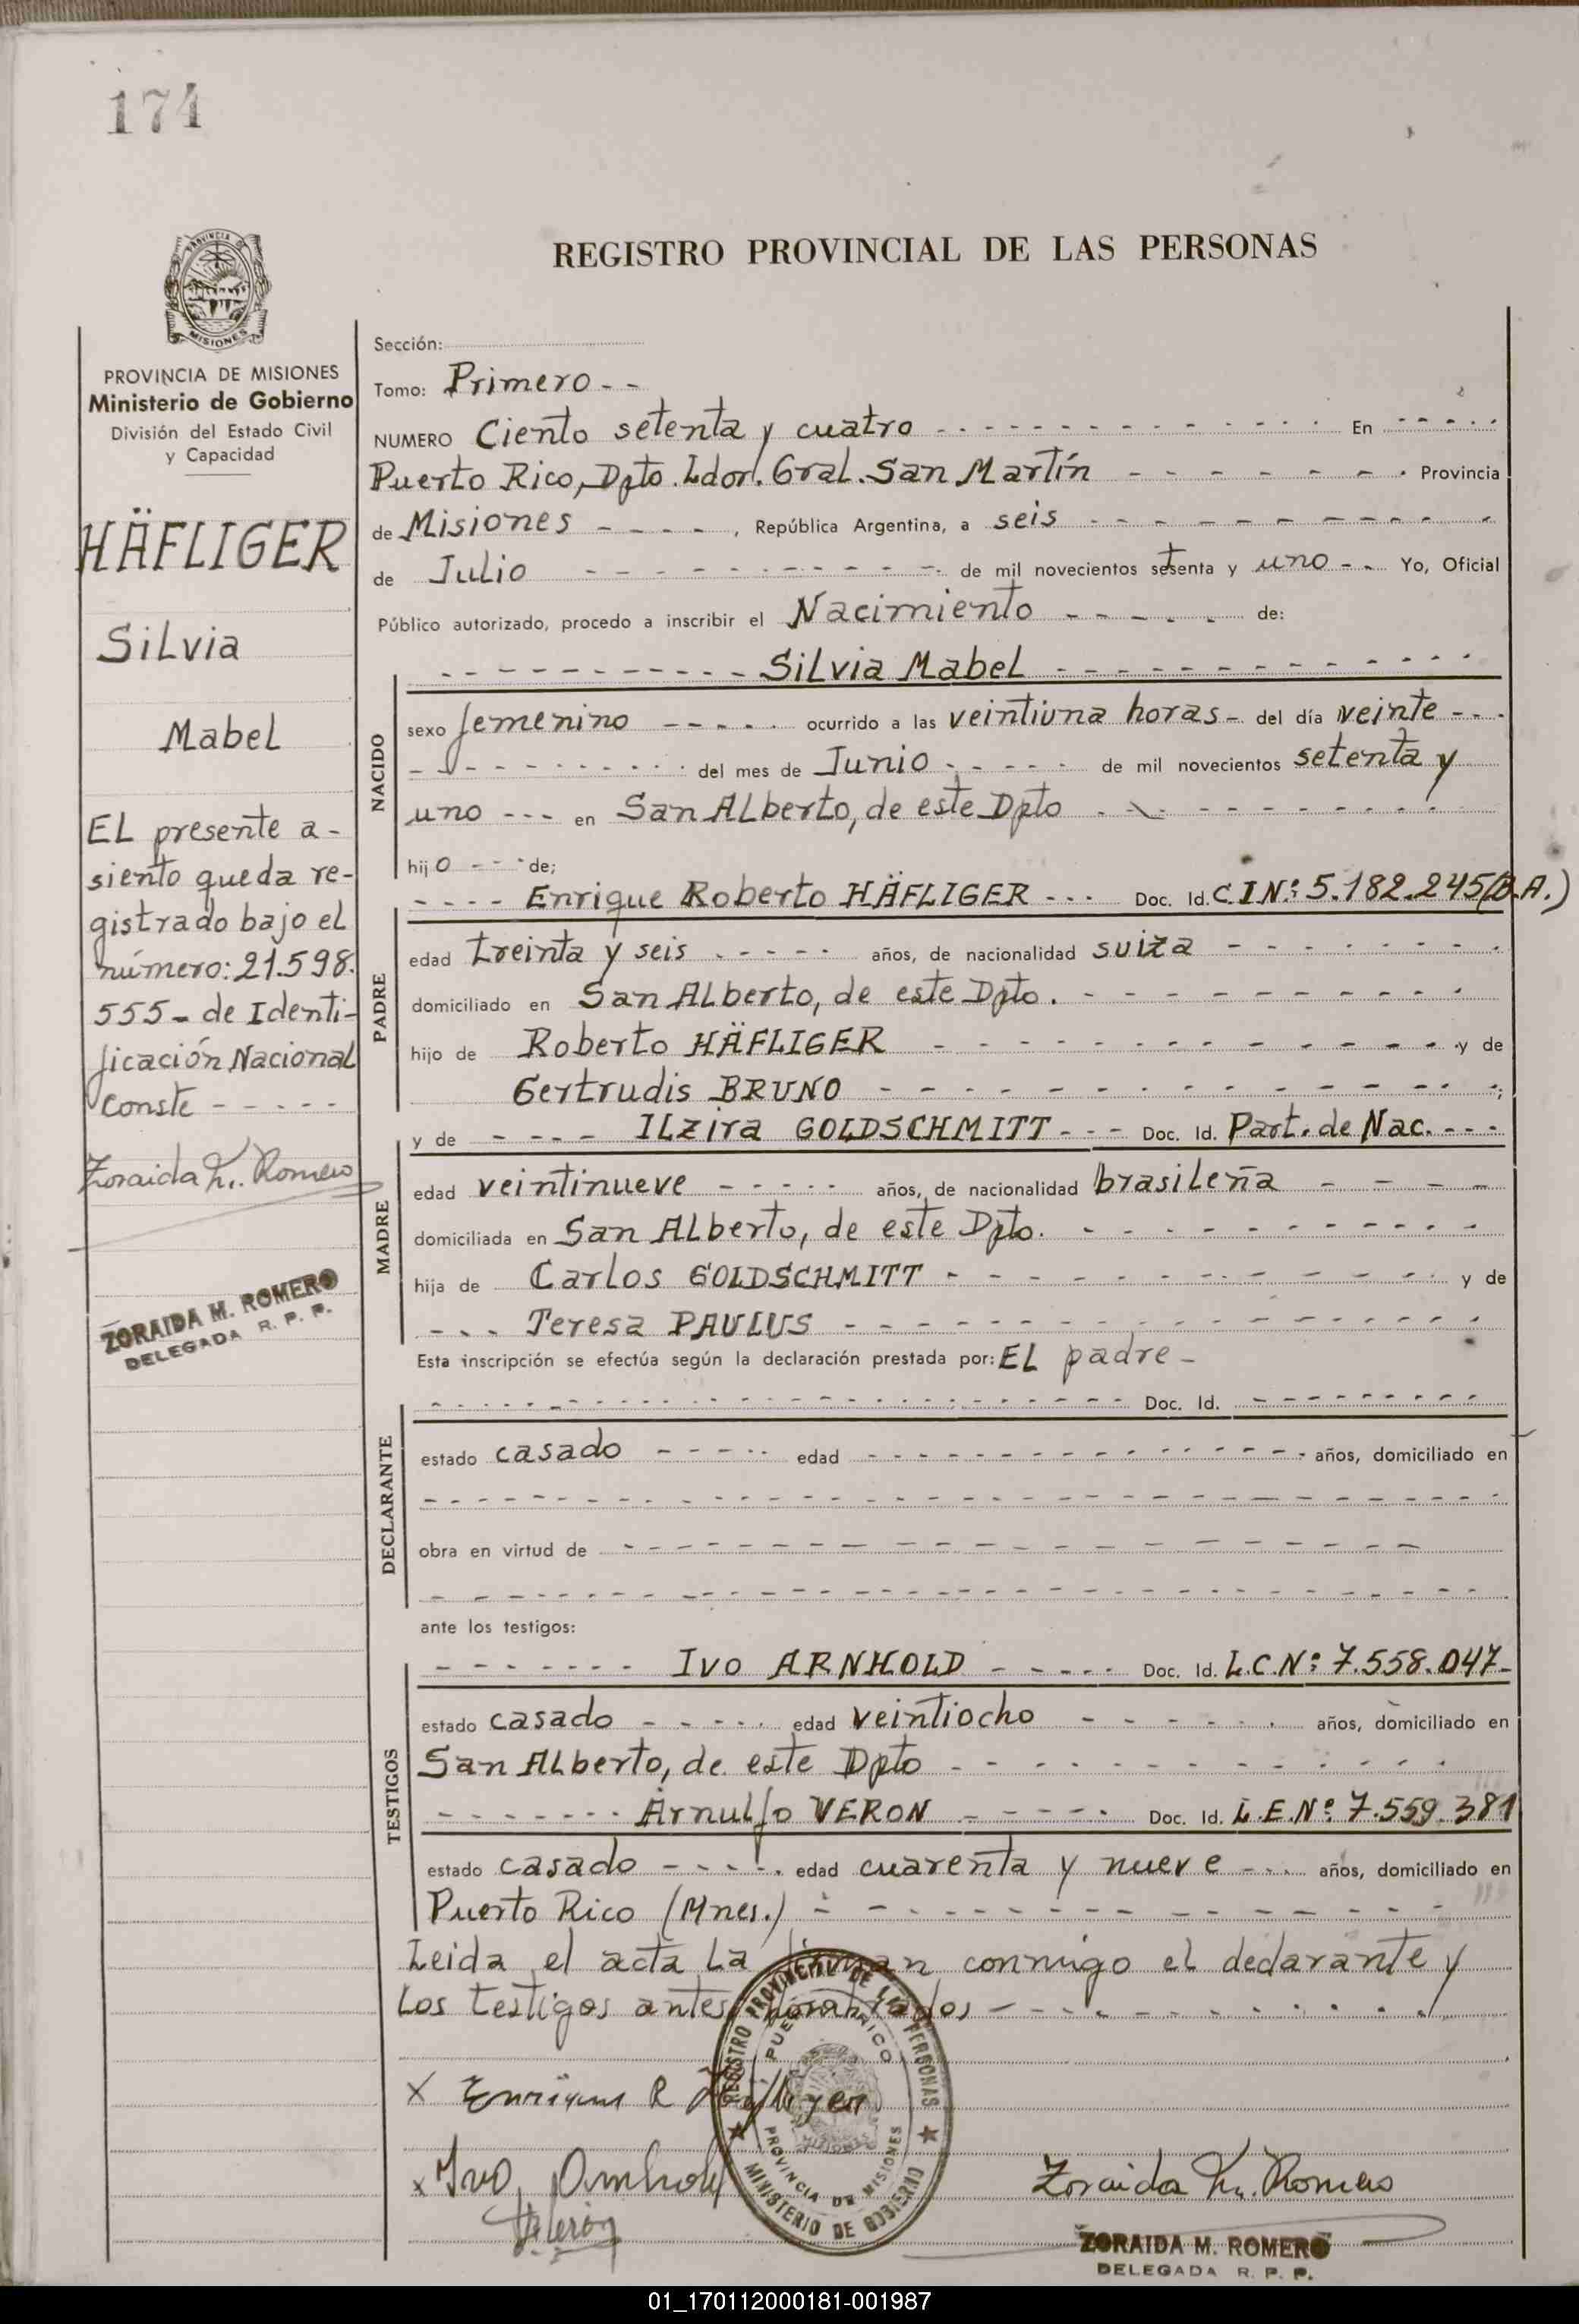 174
REGISTRO PROVINCIAL DE LAS PERSONAS
PROVINCIA DE MISIONES
PROVINCIA DE MISIONES
Ministerio de Gobierno
División del Estado Civil
y Capacidad
HÄFLIGER
Silvia
Mabel
EL presente a-
siento queda re-
gistrado bajo el
número: 21.598.
555- de Identi-
ficación Nacional
Conste - - - - -
Zoraida M. Romero
ZORAIDA M. ROMERO
DELEGADA R. P. P.
Sección:
Tomo: Primero - -
NUMERO Ciento setenta y cuatro - - - - En - - - -
Puerto Rico, Dpto. Ldor. Gral. San Martín - - - - Provincia
de Misiones - - - - , República Argentina, a seis - - - -
de Julio - - - - de mil novecientos setenta y uno - - Yo, Oficial
Público autorizado, procedo a inscribir el Nacimiento - - - - de:
- - - - Silvia Mabel - - - -
NACIDO
sexo femenino - - - - ocurrido a las veintiuna horas - del día veinte - - -
- - - - del mes de Junio - - - - de mil novecientos setenta y
uno - - - en San Alberto, de este Dpto - - - -
hijo - - - de;
- - - - Enrique Roberto HÄFLIGER - - - Doc. Id. C I Nº: 5.182.245 (B.A.)
PADRE
edad treinta y seis - - - - años, de nacionalidad suiza - - - -
domiciliado en San Alberto, de este Dpto. - - - -
hijo de Roberto HÄFLIGER - - - - y de
Gertrudis BRUNO - - - - ;
y de - - - - ILzira GOLDSCHMITT - - - Doc. Id. Part. de Nac. - - -
MADRE
edad veintinueve - - - - años, de nacionalidad brasileña - - - -
domiciliada en San Alberto, de este Dpto. - - - -
hija de Carlos GOLDSCHMITT - - - - y de
- - - Teresa PAULUS - - - -
Esta inscripción se efectúa según la declaración prestada por: EL padre -
- - - - Doc. Id. - - - -
DECLARANTE
estado casado - - - - edad - - - - años, domiciliado en
- - - -
obra en virtud de - - - -
- - - -
ante los testigos:
- - - - Ivo ARNHOLD - - - - Doc. Id. L.C.Nº: 7.558.047-
TESTIGOS
estado casado - - - - edad veintiocho - - - - años, domiciliado en
San Alberto, de este Dpto - - - -
- - - - Arnulfo VERON - - - - Doc. Id. L.E.Nº: 7.559.381
estado casado - - - - edad cuarenta y nueve - - - años, domiciliado en
Puerto Rico (Mnes.) - - - -
Leida el acta la firman conmigo el declarante y
los testigos antes nombrados - - - -
REGISTRO PROVINCIAL DE LAS PERSONAS
PUERTO RICO
PROVINCIA DE MISIONES
MINISTERIO DE GOBIERNO
X Enrique R Häfliger
x Ivo Arnhold
Verón
Zoraida M. Romero
ZORAIDA M. ROMERO
DELEGADA R. P. P.
01_170112000181-001987